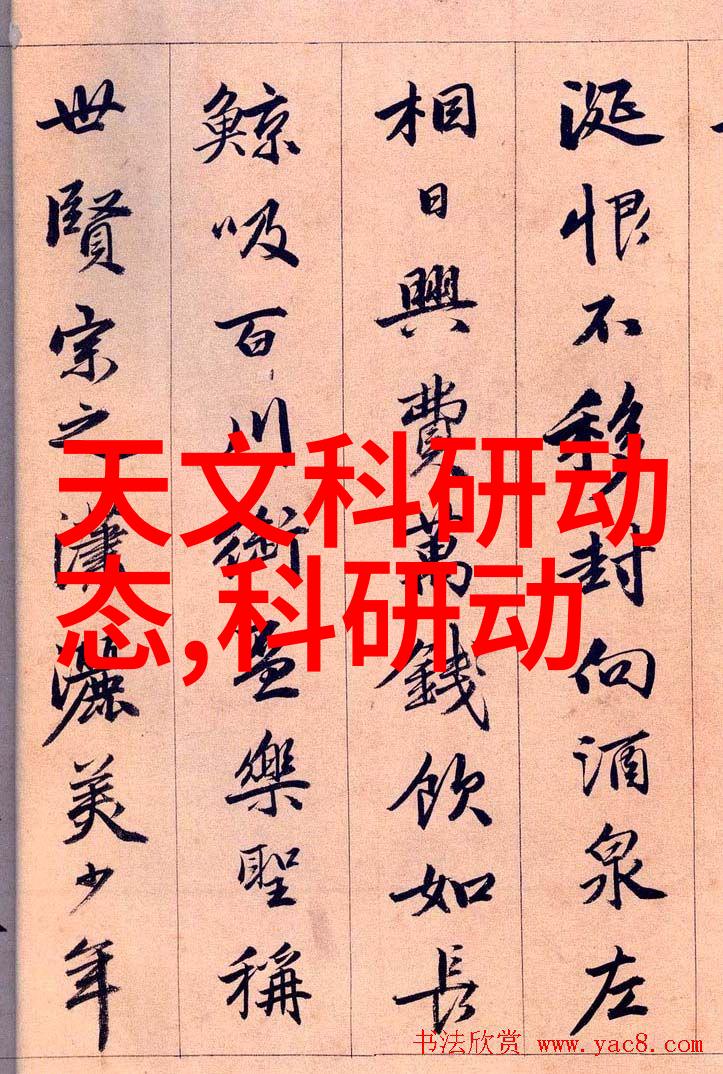 涎恨不移封向酒泉左
相日興費萬錢飲如長
鯨吸百川銜盃樂聖稱
世賢宗之瀟灑美少年
天文科研动
态,科研动
书法欣赏 www.yac8.com